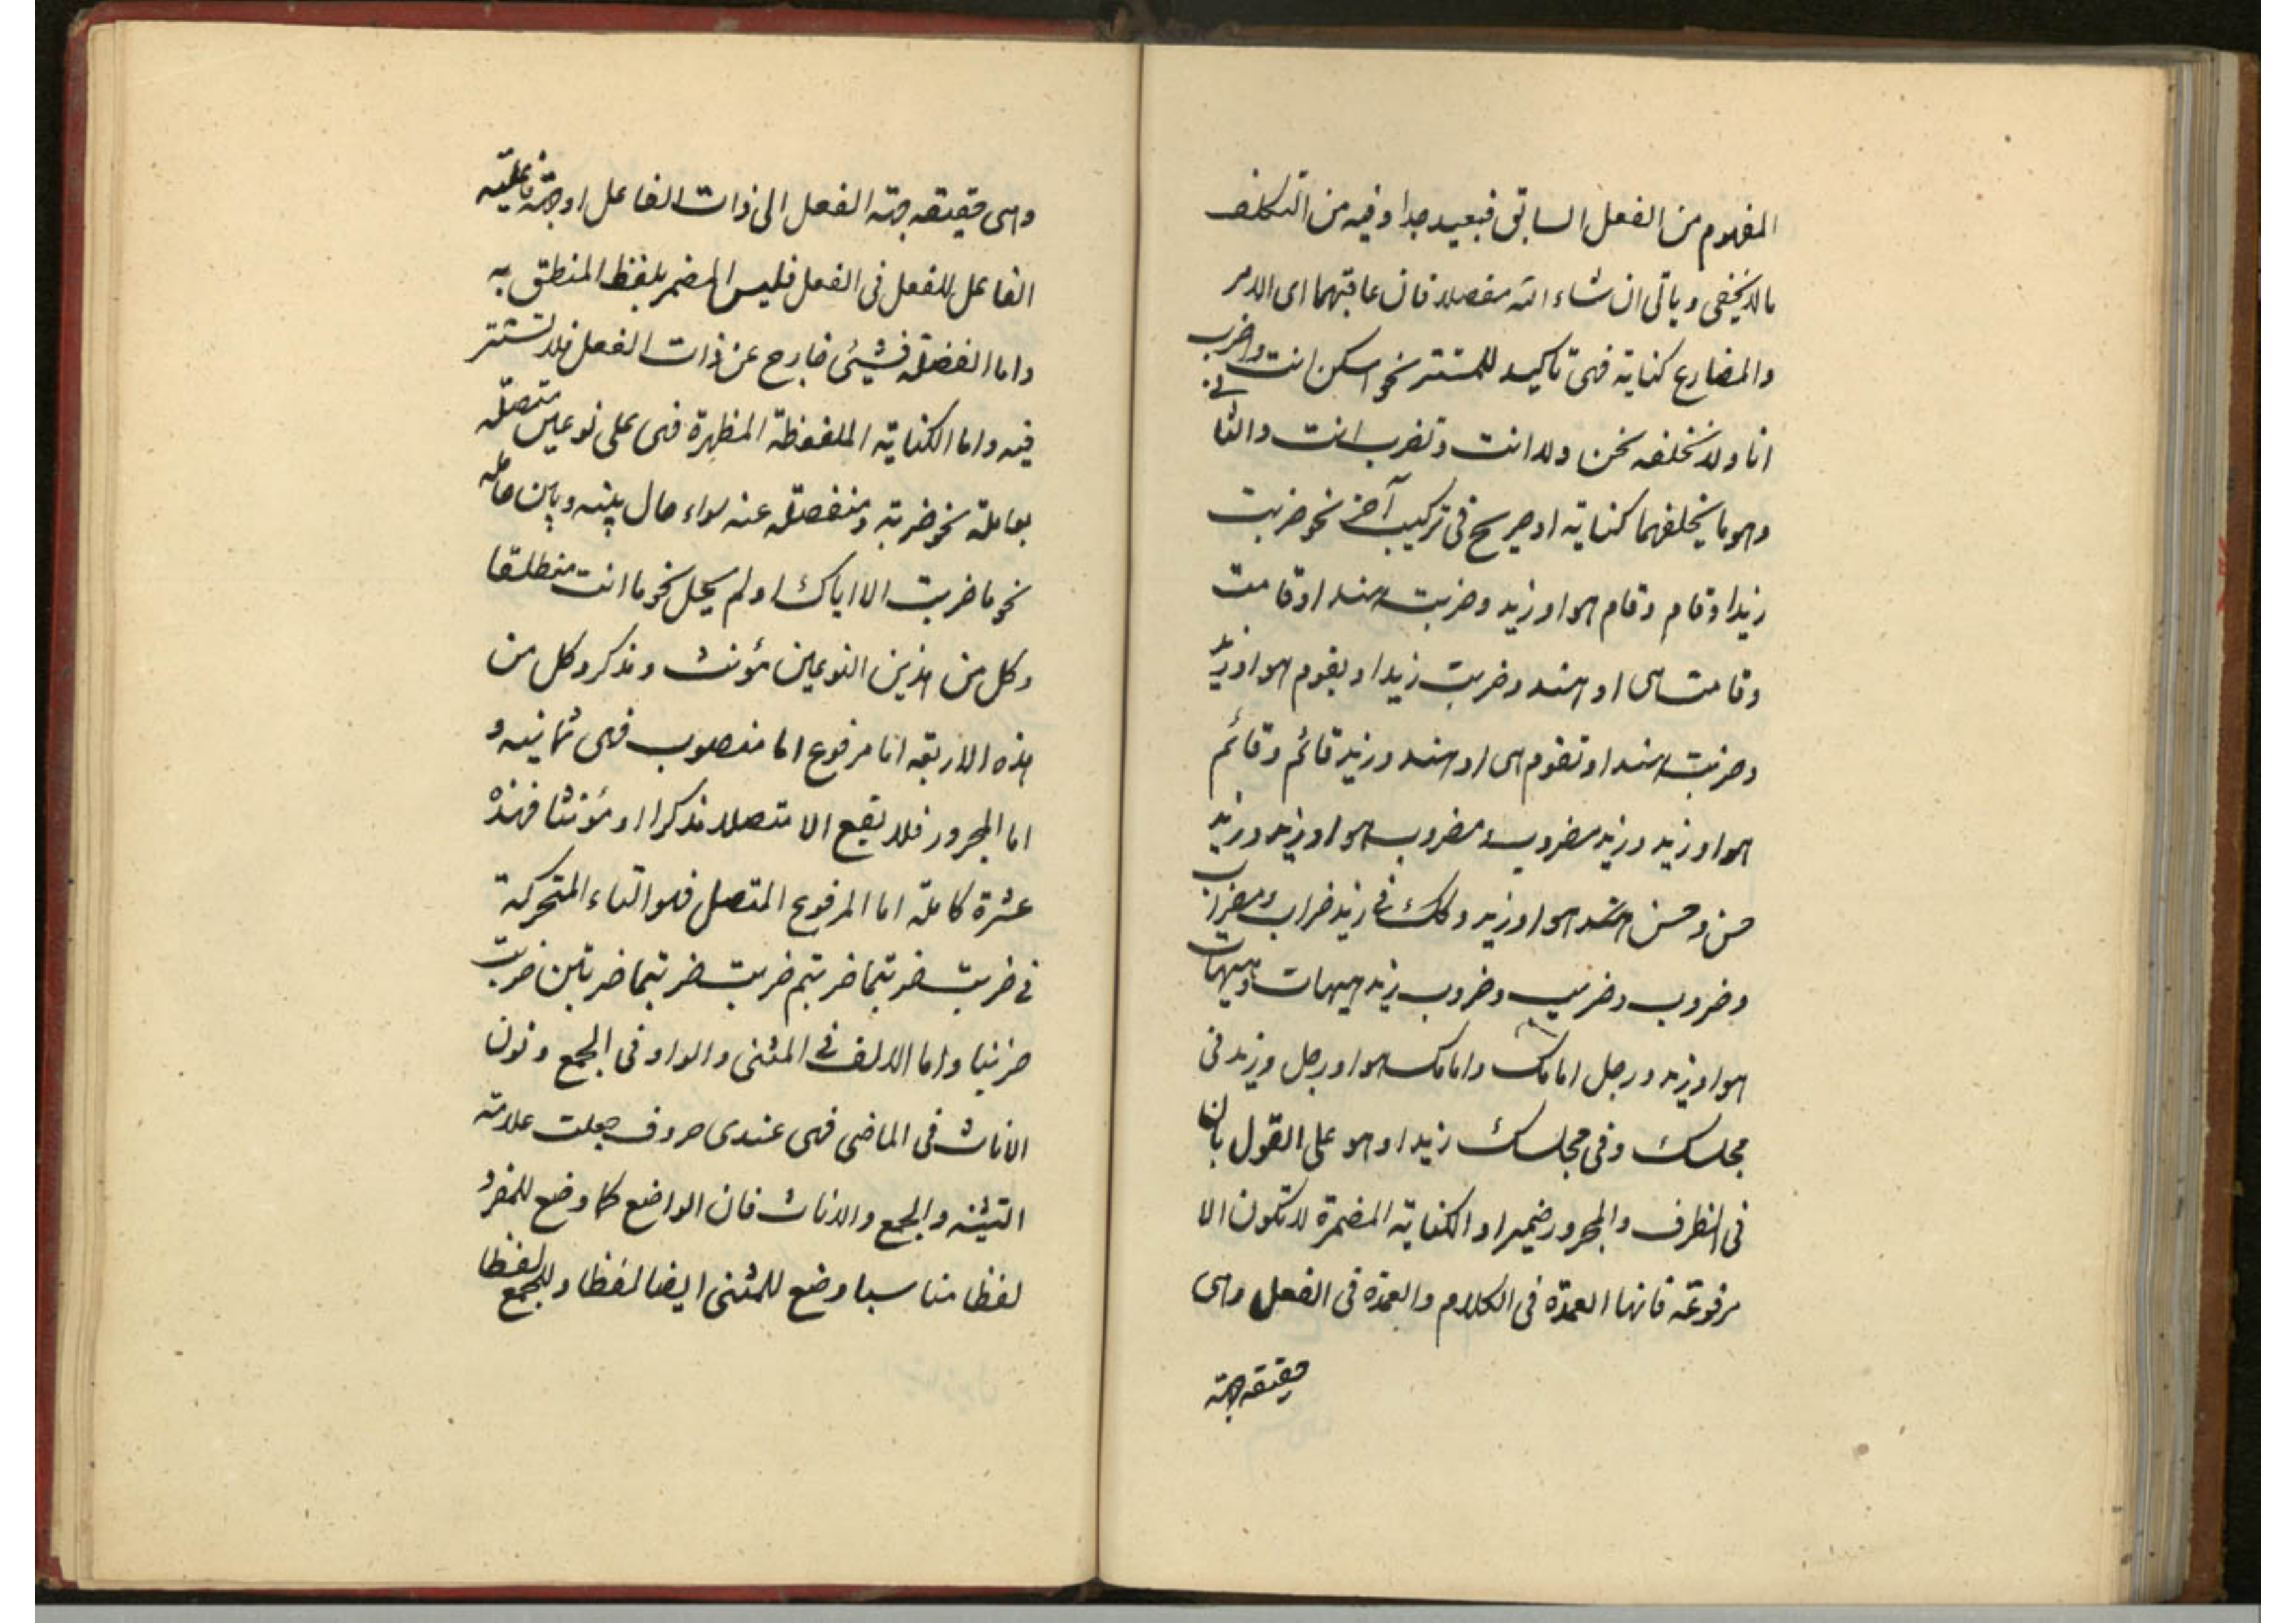 المفهوم من الفعل السابق فبعيد جدا وفيه من التكلف
مالا يخفى وياتى ان شاء الله مفصلا فان عاقبتهما اى الامر
والمضارع كناية فهى تاكيد للمستتر نحو اسكن انت واضرب
انا ولا نخلفه نحن ولا انت وتضرب انت والثانى
وهو ما يخلفهما كناية او صريح فى تركيب آخر نحو ضربت
زيدا وقام وقام هو او زيد وضربت هندا وقامت
وقامت هى او هند وضربت زيدا ويقوم هو او زيد
وضربت هندا وتقوم هى او هند وزيد قائم وقائم
هو او زيد وزيد مضروب ومضروب هو او زيد وزيد
حسن وحسن هو او زيد وكك فى زيد ضراب ومضراب
وضروب وضريب وضروب زيد هيهات وهيهات
هو او زيد ورجل امامك وامامك هو او رجل وزيد فى
مجلسك وفى مجلسك زيد او هو على القول بان
فى الظرف والمجرور ضميرا والكناية المضمرة لا تكون الا
مرفوعة فانها العمدة فى الكلام والعمدة فى الفعل وهى
حقيقة جهة
وهى حقيقة جهة الفعل الى ذات الفاعل او جهة فاعلية
الفاعل للفعل فى الفعل فليس المضمر بلفظ المنطق به
واما الفضلة فشيئ خارج عن ذات الفعل فلا تستتر
فيه واما الكناية الملفوظة المظهرة فهى على نوعين متصلة
بعاملة نحو ضربته ومنفصلة عنه سواء حال بينه وبين عامله
نحو ما ضربت الا اياك او لم يحل نحو ما انت منطلقا
وكل من هذين النوعين مؤنث ومذكر وكل من
هذه الاربعة اما مرفوع اما منصوب فهى ثمانيه و
اما المجرور فلا يقع الا متصلا مذكرا او مؤنثا فهذه
عشرة كاملة اما المرفوع المتصل فهو التاء المتحركة
فى ضربت ضربتما ضربتم ضربت ضربتما ضربتن ضربت
ضربنا واما الالف فى المثنى والواو فى الجمع ونون
الاناث فى الماضى فهى عندى حروف جعلت علامة
التثنية والجمع والاناث فان الواضع كما وضع للمفرد
لفظا مناسبا وضع للمثنى ايضا لفظا وللجمع لفظا